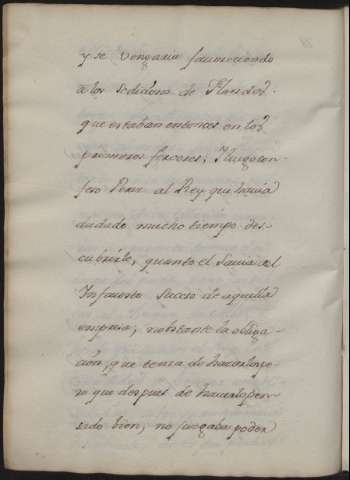 y se vengaria favoreciendo
a los sediciosos de Flandes.
que estaban entonces en los
primeros furores; Pluego con-
feso Perez al Rey que havia
dudado mucho tiempo des-
cubrirle, quanto el Savia del
Infausto suceso de aquella
empresa; no obstante la obliga-
cion, que tenia de hacerlo pe-
ro que despues de haverlo pen-
sado bien, no juzgaba poder